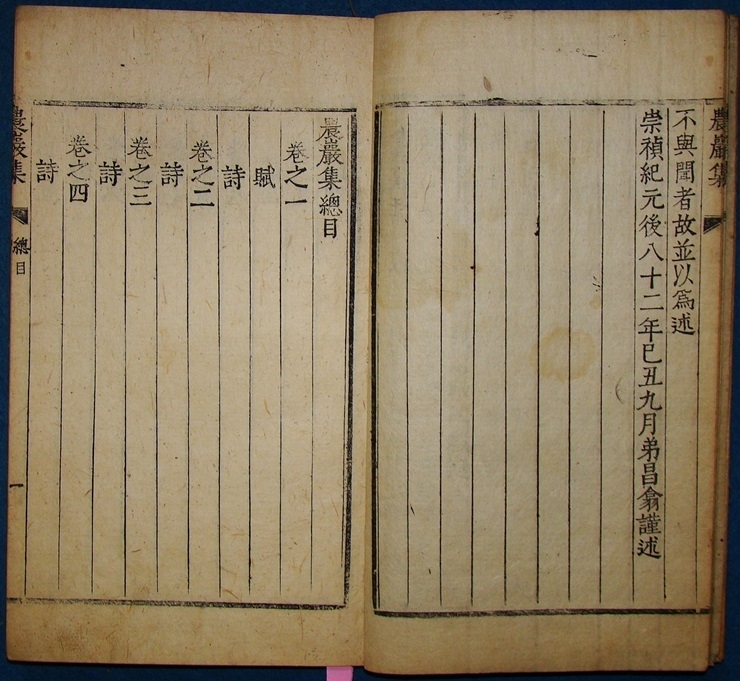 農巖集
不與聞者故並以爲述
崇禎紀元後八十二年己丑九月弟昌翕謹述
農巖集總目
卷之一
賦
詩
卷之二
詩
卷之三
詩
卷之四
詩
農巖集
總目
一